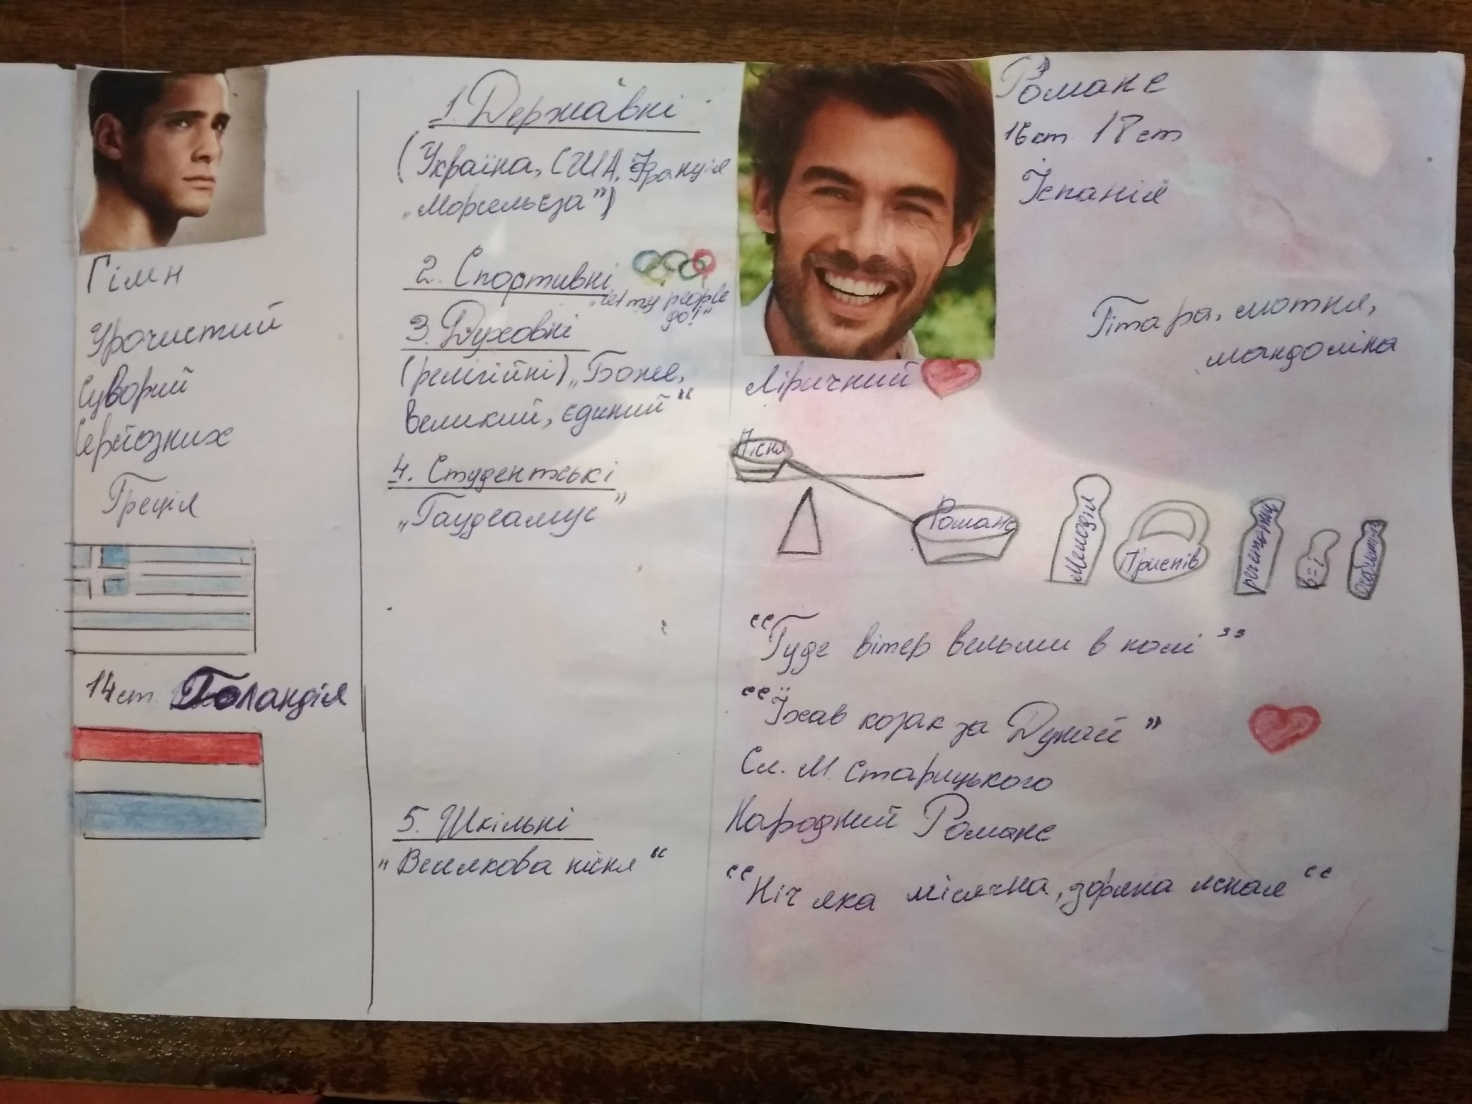 Гімн
Урочистий
Суворий
Серйозних
Греція
14 ст. Голандія
1. Державні
(Україна, США, Франція
„Марсельєза")
2. Спортивні
"let my people
go!"
3. Духовні
(релігійні) „Боже,
великий, єдиний"
4. Студентські
„Гаудеамус"
5. Шкільні
„Веселкова пісня"
Романс
16 ст 18 ст
Іспанія
Гітара, лютня,
мандоліна
Ліричний
Пісня
Романс
Мелодія
Приспів
в=і
"Гуде вітер вельми в полі"
"Їхав козак за Дунай"
Сл. М. Старицького
Народний Романс
"Ніч яка місячна, зоряна ясная"